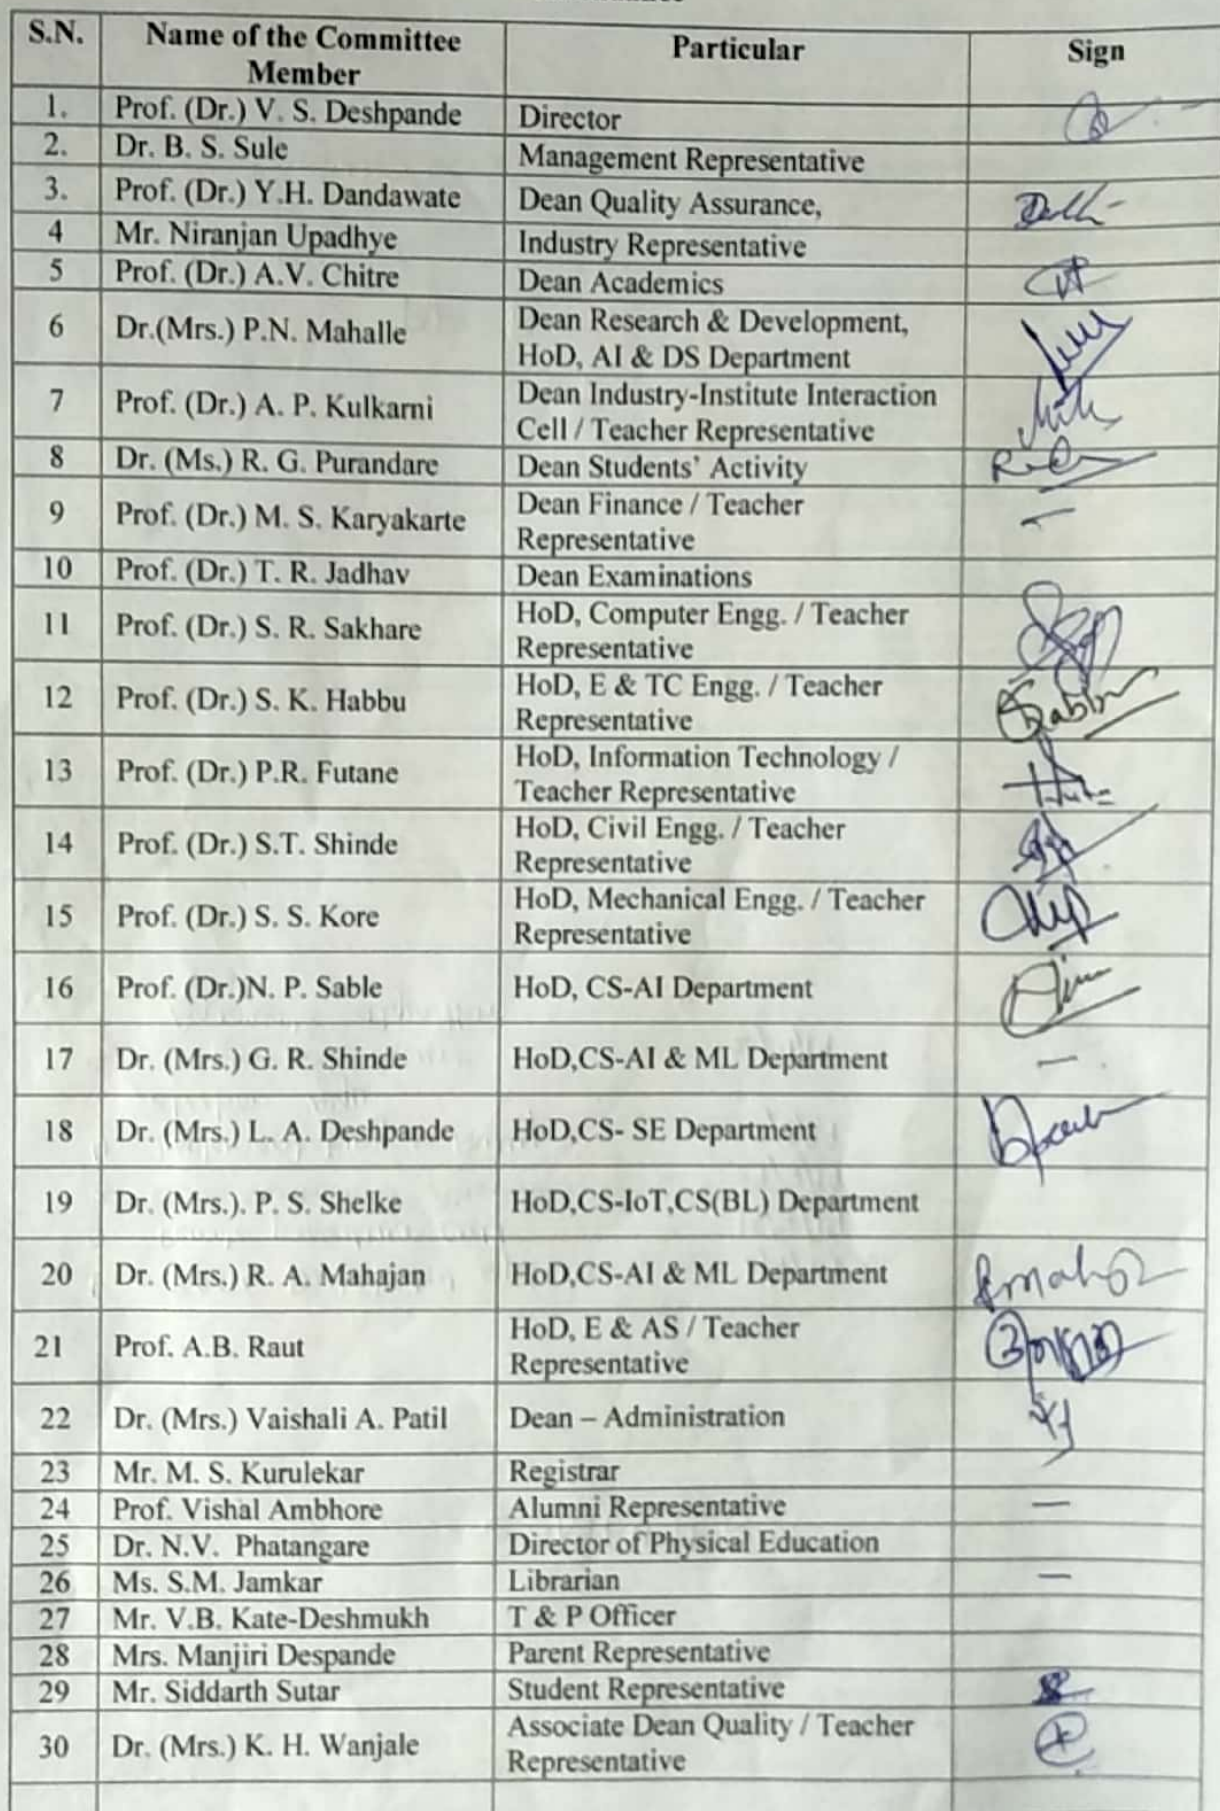 S.N. Name of the Committee Particular Sign
Member
1. Prof. (Dr.) V. S. Deshpande Director
2. Dr. B. S. Sule Management Representative
3. Prof. (Dr.) Y.H. Dandawate Dean Quality Assurance,
4 Mr. Niranjan Upadhye Industry Representative
5 Prof. (Dr.) A.V. Chitre Dean Academics
6 Dr.(Mrs.) P.N. Mahalle Dean Research & Development,
HoD, AI & DS Department
7 Prof. (Dr.) A. P. Kulkarni Dean Industry-Institute Interaction
Cell / Teacher Representative
8 Dr. (Ms.) R. G. Purandare Dean Students' Activity
9 Prof. (Dr.) M. S. Karyakarte Dean Finance / Teacher
Representative
10 Prof. (Dr.) T. R. Jadhav Dean Examinations
11 Prof. (Dr.) S. R. Sakhare HoD, Computer Engg. / Teacher
Representative
12 Prof. (Dr.) S. K. Habbu HoD, E & TC Engg. / Teacher
Representative
13 Prof. (Dr.) P.R. Futane HoD, Information Technology /
Teacher Representative
14 Prof. (Dr.) S.T. Shinde HoD, Civil Engg. / Teacher
Representative
15 Prof. (Dr.) S. S. Kore HoD, Mechanical Engg. / Teacher
Representative
16 Prof. (Dr.)N. P. Sable HoD, CS-AI Department
17 Dr. (Mrs.) G. R. Shinde HoD,CS-AI & ML Department
18 Dr. (Mrs.) L. A. Deshpande HoD,CS- SE Department
19 Dr. (Mrs.). P. S. Shelke HoD,CS-IoT,CS(BL) Department
20 Dr. (Mrs.) R. A. Mahajan HoD,CS-AI & ML Department
21 Prof. A.B. Raut HoD, E & AS / Teacher
Representative
22 Dr. (Mrs.) Vaishali A. Patil Dean – Administration
23 Mr. M. S. Kurulekar Registrar
24 Prof. Vishal Ambhore Alumni Representative
25 Dr. N.V. Phatangare Director of Physical Education
26 Ms. S.M. Jamkar Librarian
27 Mr. V.B. Kate-Deshmukh T & P Officer
28 Mrs. Manjiri Despande Parent Representative
29 Mr. Siddarth Sutar Student Representative
30 Dr. (Mrs.) K. H. Wanjale Associate Dean Quality / Teacher
Representative